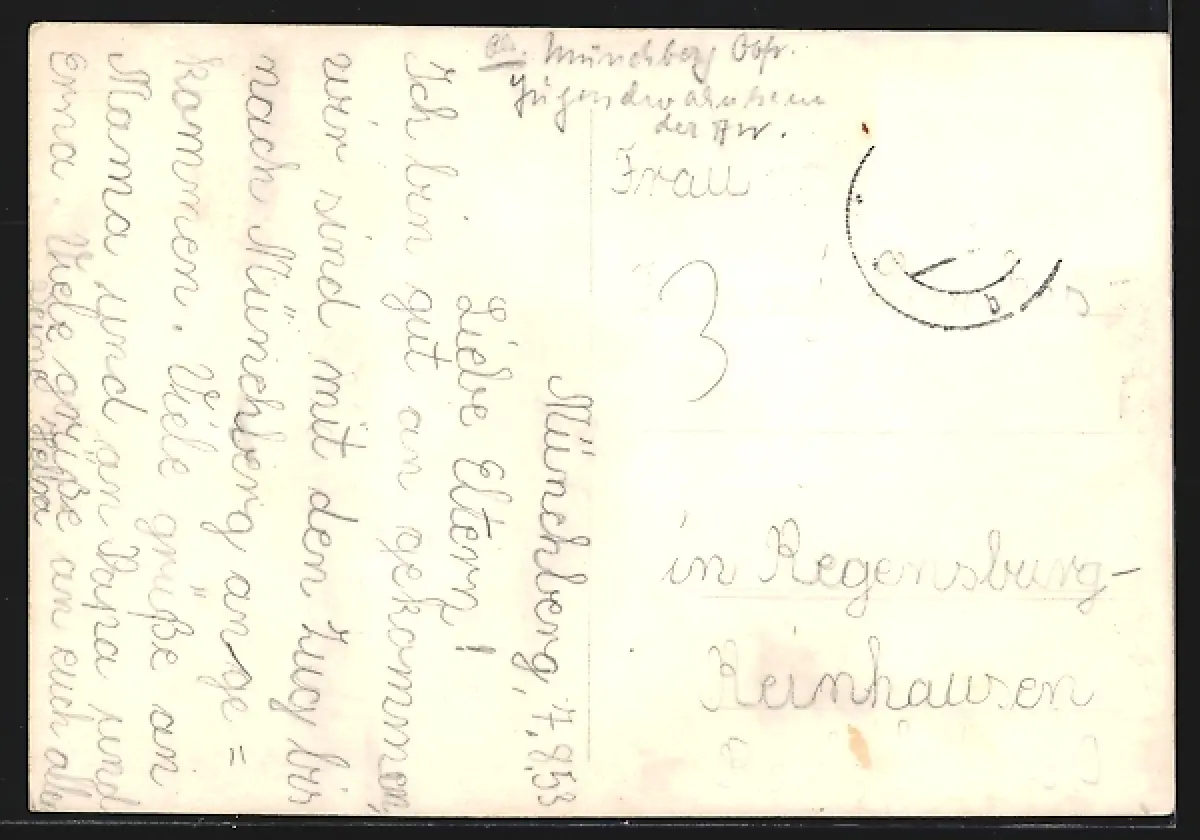 Abs. Münchberg Obfr.
Jugendwohnheim
der AW.
Frau
3
in Regensburg-
Reinhausen
Münchberg, 7.8.53
Liebe Eltern!
Ich bin gut an gekommen,
wir sind mit den Zug bis
nach Münchberg ange =
kommen. Viele grüße an
Mama und an Papa und
Erna. Viele grüße an euch alle